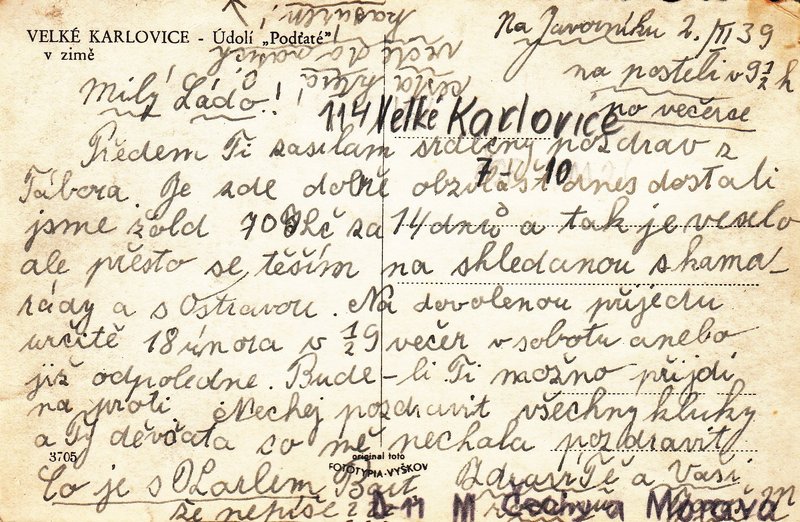 VELKÉ KARLOVICE - Údolí „Podťaté”
v zimě
Na Javorníku 2./II 39
na posteli v 9 1/2 h
po večerse
Milý Láďo!
114 Velké Karlovice
7 10
Předem Ti zasílám srdečný pozdrav z
Tábora. Je zde dobře obzvlášť dnes dostali
jsme žold 70 Kč za 14 dnů a tak je veselo
ale přesto se těším na shledanou s kama-
rády a s Ostravou. Na dovolenou přijedu
určitě 18 února v 1/2 9 večer v sobotu anebo
již odpoledne. Bude-li Ti možno přijdi
na proti. Nechej pozdravit všechny kluky
a Ty děvčata co mě nechala pozdravit
3705
original foto
FOTOTYPIA-VYŠKOV
Co je s
že nepíše
Zdraví Tě a Vaši
Čechy a Morava